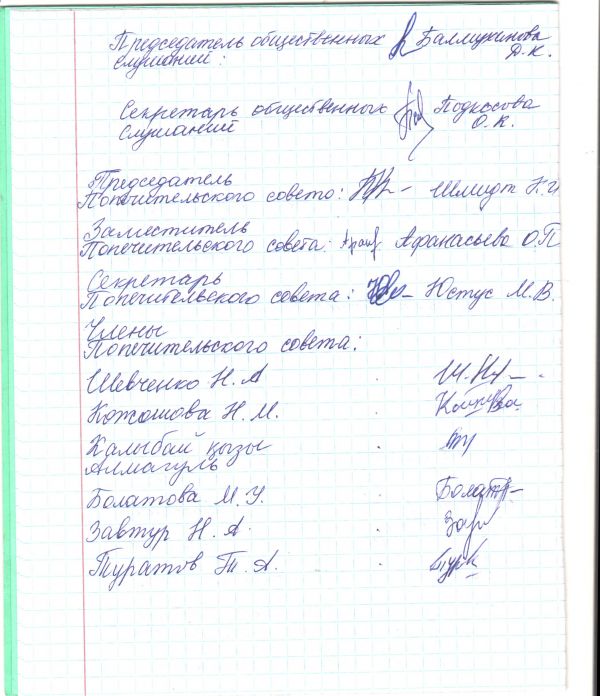 Председатель общественных Балмукинова
слушаний: Д. К.
Секретарь общественных Подкосова
слушаний О. К.
Председатель
Попечительского совета: Шмидт Н.
Заместитель
Попечительского совета: Афанасьева О.П
Секретарь
Попечительского совета: Юстус М.В.
Члены
Попечительского совета:
Шевченко Н. А Ш.Н
Кожошова Н. М.
Калыбай қызы
Алмагуль
Болатова М. У. Болат
Завтур Н. А. Зав
Туратов Т. А. Тур